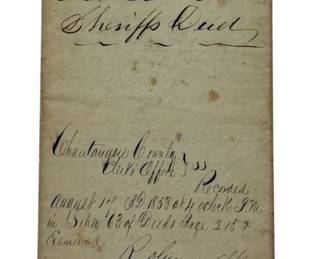 Sheriffs Deed
Chautauque County
Clerks Office } SS
Recorded
August 1st AD 1853 at 4 oclock P.M.
in Liber 63 of Deeds Page 215 &
Examined